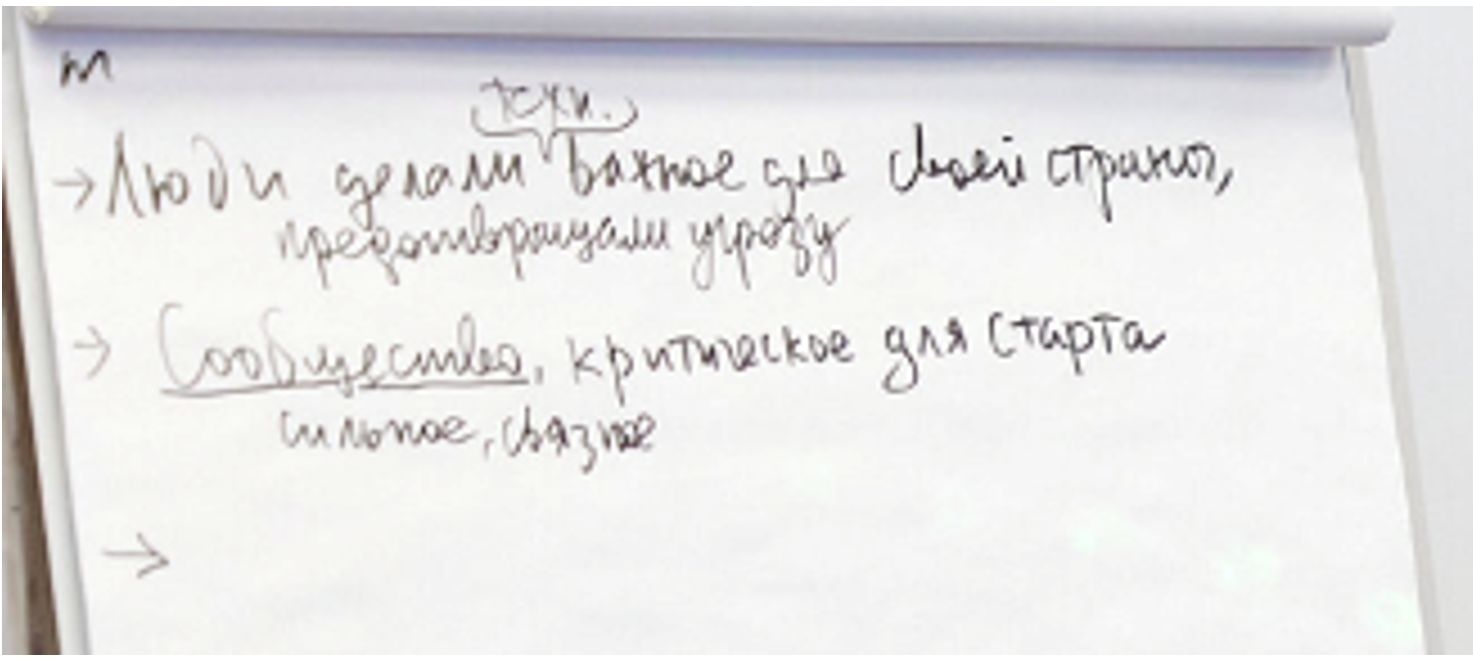 m
техн.
→ Люди делали важное для своей страны,
предотвращали угрозу
→ Сообщество, критическое для старта
сильное, связное
→